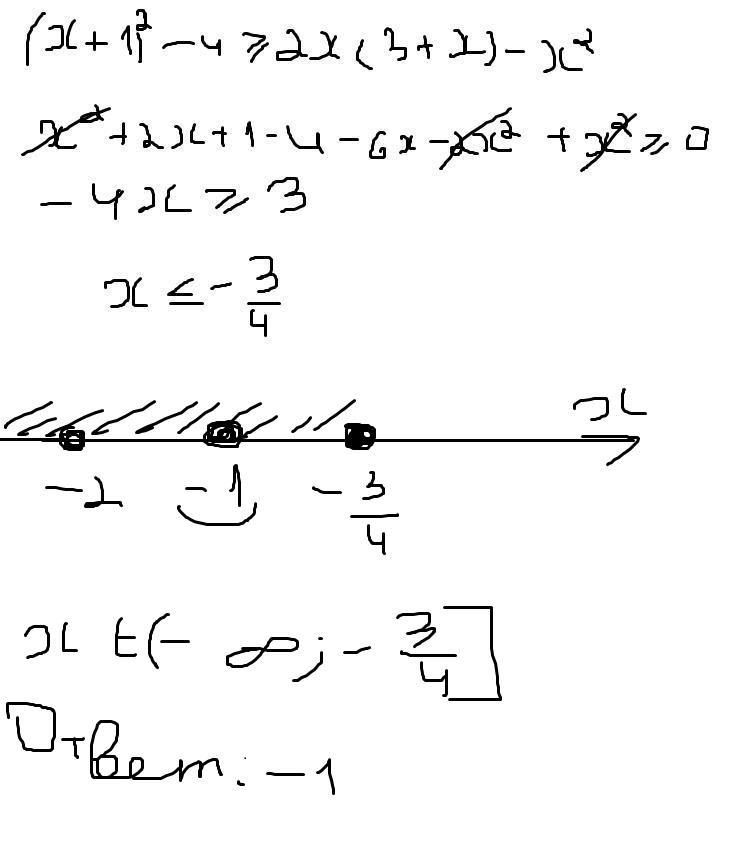 (x+1)² - 4 ≥ 2x(3+x) - x²
x² + 2x + 1 - 4 - 6x - 2x² + x² ≥ 0
- 4x ≥ 3
x ≤ - 3/4
x
-2 -1 - 3/4
x ∈ (- ∞; - 3/4]
Ответ: -1